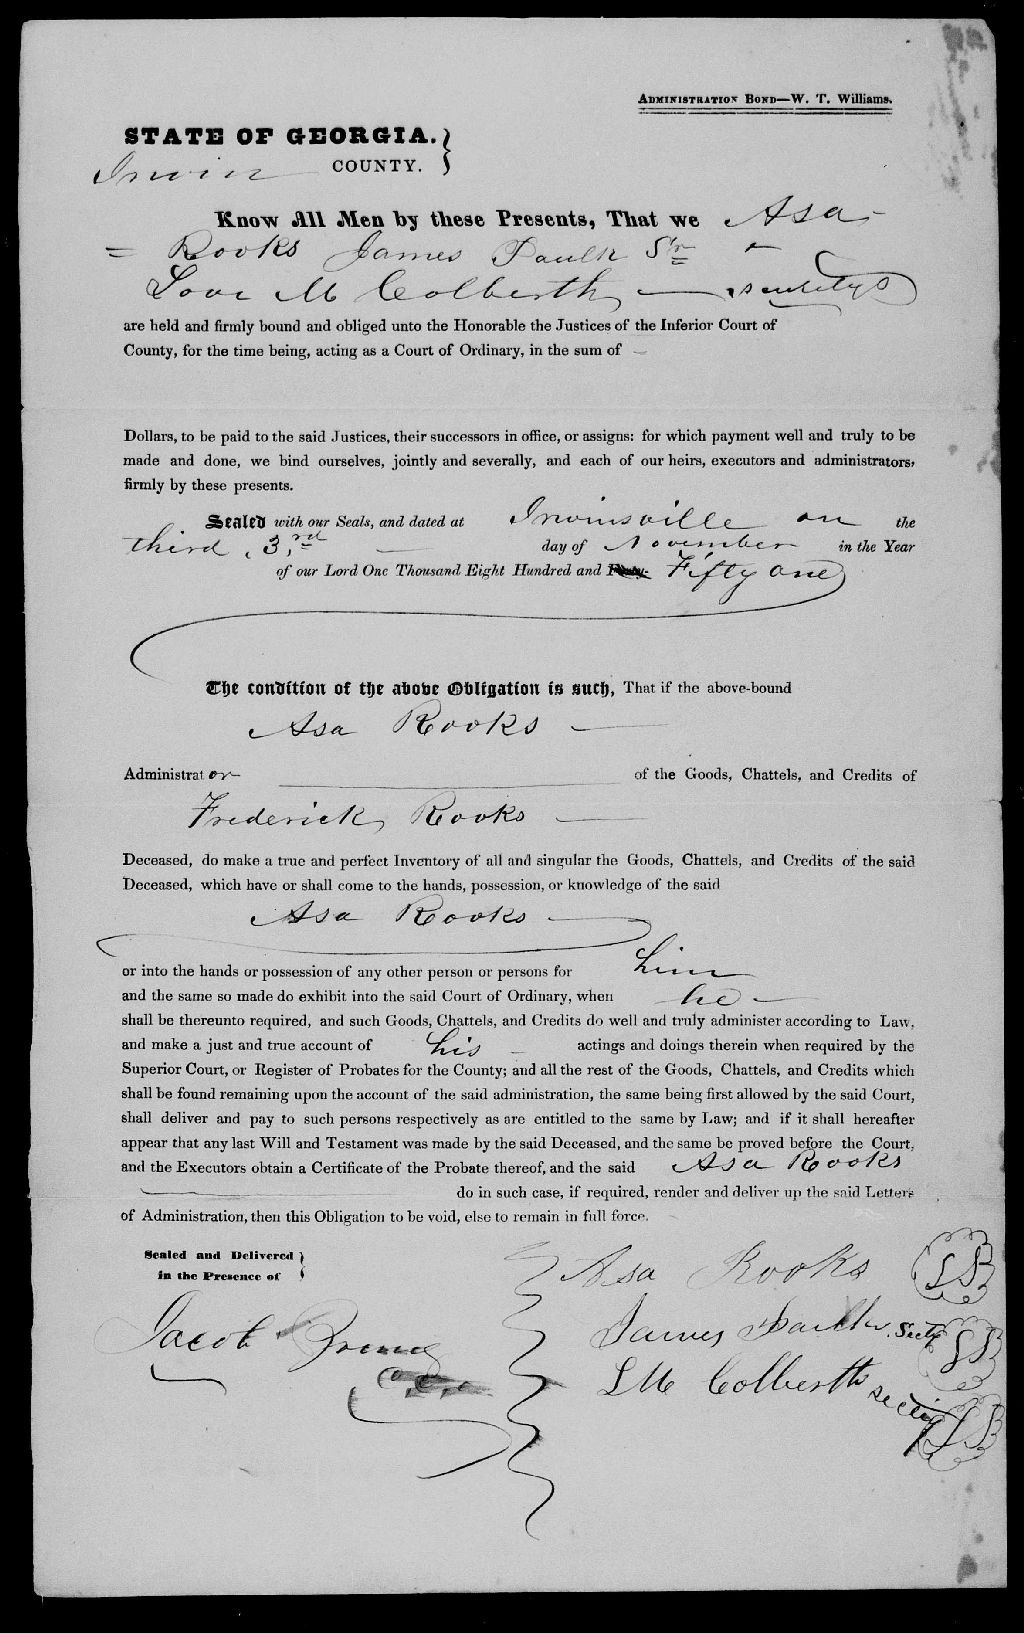 Administration Bond—W. T. Williams.
STATE OF GEORGIA.
Irwin COUNTY.
Know All Men by these Presents, That we Asa
= Rooks James Paulk Sr
Love M Colberth
are held and firmly bound and obliged unto the Honorable the Justices of the Inferior Court of
County, for the time being, acting as a Court of Ordinary, in the sum of
Dollars, to be paid to the said Justices, their successors in office, or assigns: for which payment well and truly to be
made and done, we bind ourselves, jointly and severally, and each of our heirs, executors and administrators,
firmly by these presents.
Sealed with our Seals, and dated at Irwinsville on the
third 3rd day of November in the Year
of our Lord One Thousand Eight Hundred and Fifty one
The condition of the above Obligation is such, That if the above-bound
Asa Rooks
Administrator of the Goods, Chattels, and Credits of
Frederick Rooks
Deceased, do make a true and perfect Inventory of all and singular the Goods, Chattels, and Credits of the said
Deceased, which have or shall come to the hands, possession, or knowledge of the said
Asa Rooks
or into the hands or possession of any other person or persons for him
and the same so made do exhibit into the said Court of Ordinary, when he
shall be thereunto required, and such Goods, Chattels, and Credits do well and truly administer according to Law,
and make a just and true account of his actings and doings therein when required by the
Superior Court, or Register of Probates for the County; and all the rest of the Goods, Chattels, and Credits which
shall be found remaining upon the account of the said administration, the same being first allowed by the said Court,
shall deliver and pay to such persons respectively as are entitled to the same by Law; and if it shall hereafter
appear that any last Will and Testament was made by the said Deceased, and the same be proved before the Court,
and the Executors obtain a Certificate of the Probate thereof, and the said Asa Rooks
do in such case, if required, render and deliver up the said Letters
of Administration, then this Obligation to be void, else to remain in full force.
Sealed and Delivered
in the Presence of
Asa Rooks LS
Jacob
James Paulk Secty LS
LM Colberth LS